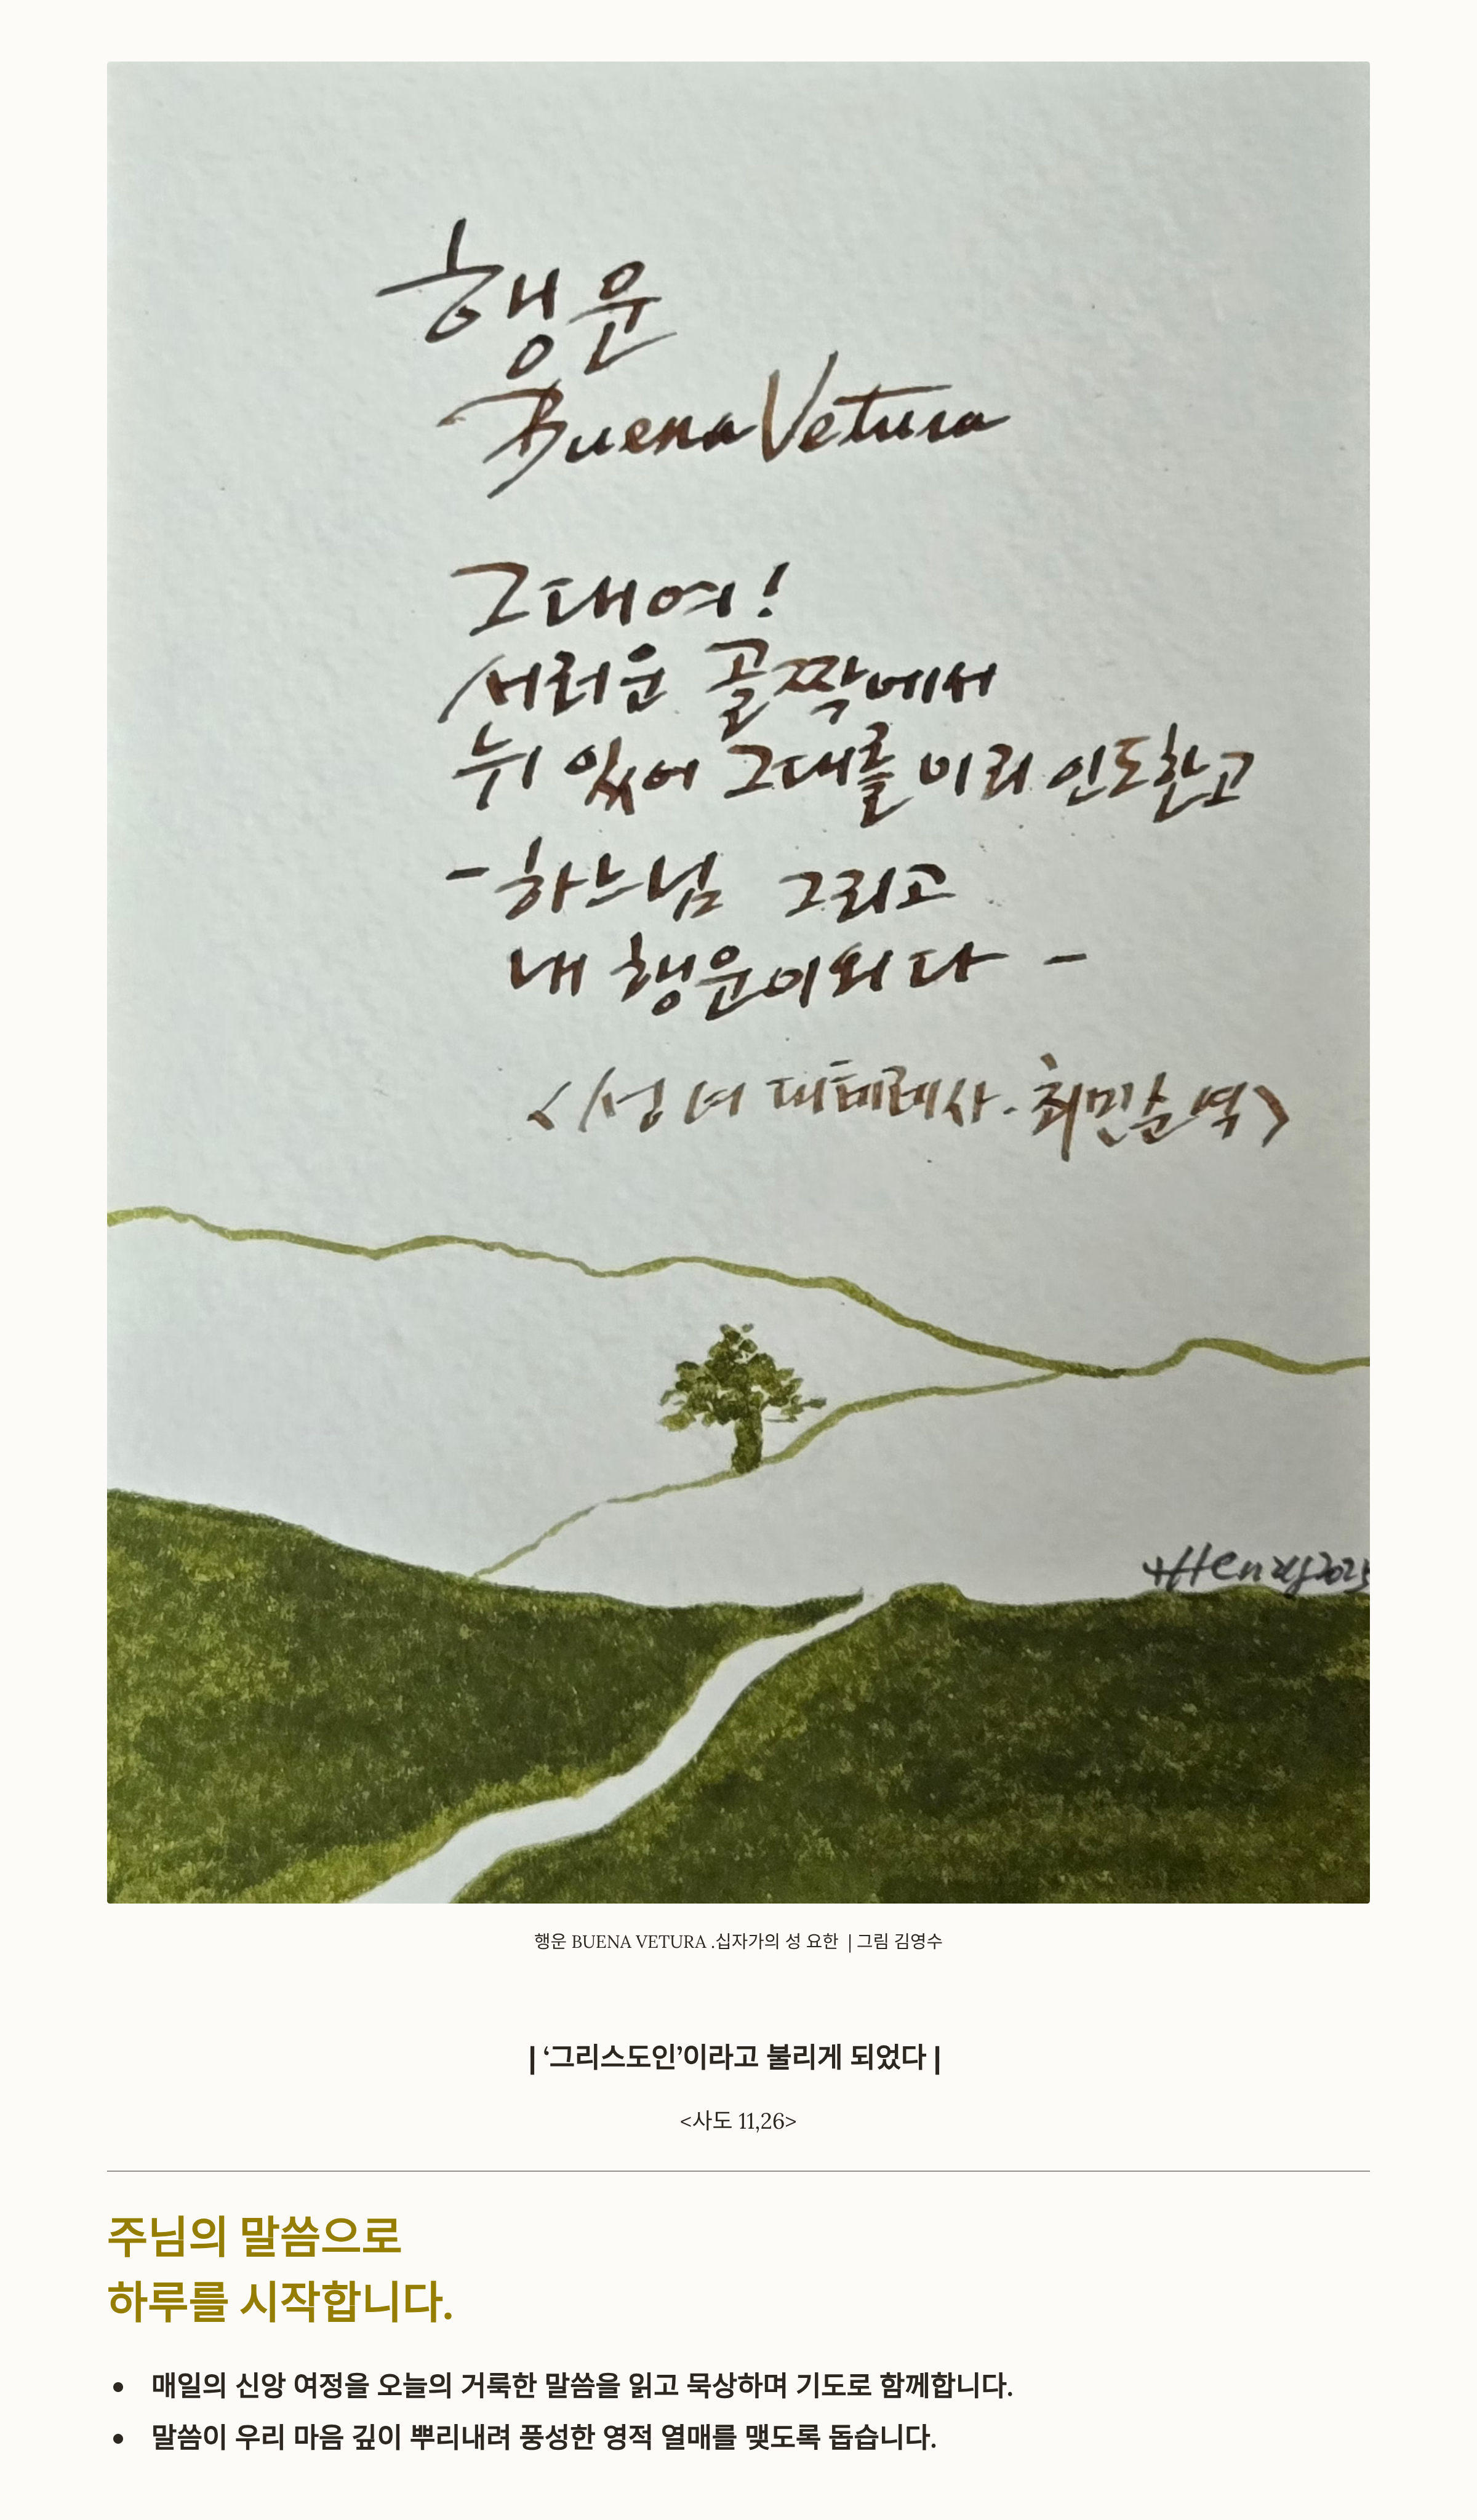 행운
Buena Vetura
그대여!
서러운 골짝에서
뉘 있어 그대를 미리 인도한고
- 하느님 그리고
내 행운이외다 -
<성녀 대테레사 · 최민순 역>
Henry 2025
행운 BUENA VETURA .십자가의 성 요한 | 그림 김영수
| ‘그리스도인’이라고 불리게 되었다 |
<사도 11,26>
주님의 말씀으로
하루를 시작합니다.
• 매일의 신앙 여정을 오늘의 거룩한 말씀을 읽고 묵상하며 기도로 함께합니다.
• 말씀이 우리 마음 깊이 뿌리내려 풍성한 영적 열매를 맺도록 돕습니다.